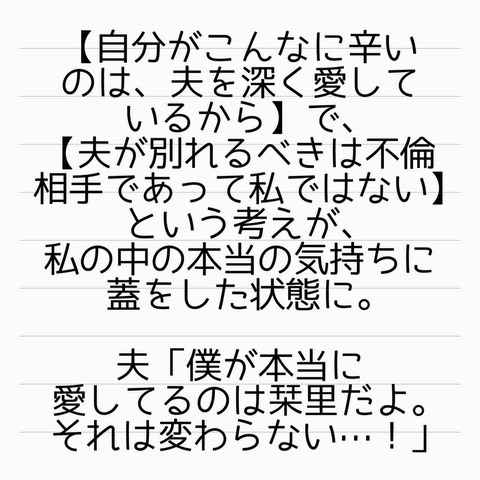 【自分がこんなに辛い
のは、夫を深く愛して
いるから】で、
【夫が別れるべきは不倫
相手であって私ではない】
という考えが、
私の中の本当の気持ちに
蓋をした状態に。
夫「僕が本当に
愛してるのは栞里だよ。
それは変わらない…！」